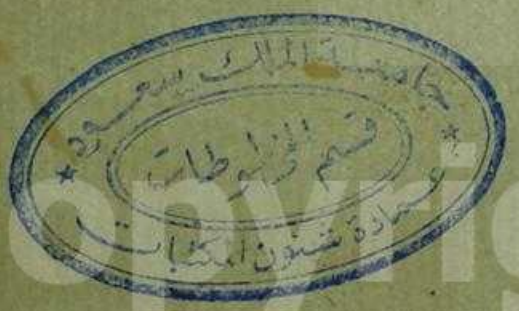 جامعة الملك سعود
قسم المخطوطات
عمادة شئون المكتبات
opyrig